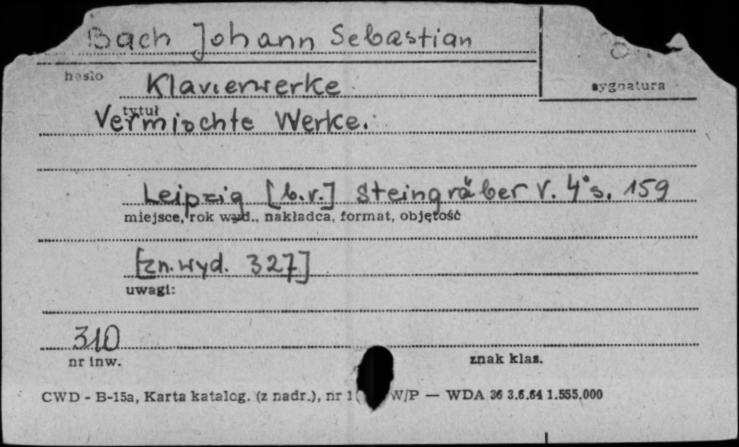 Bach Johann Sebastian
hasło
sygnatura
Klavierwerke
tytuł
Vermischte Werke.
Leipzig [b.r.] Steingräber V. 4° s. 159
miejsce, rok wyd., nakładca, format, objętość
[zn. wyd. 327]
uwagi:
310
nr inw.
znak klas.
CWD - B-15a, Karta katalog. (z nadr.), nr 1 W/P — WDA 36 3.6.64 1.555.000